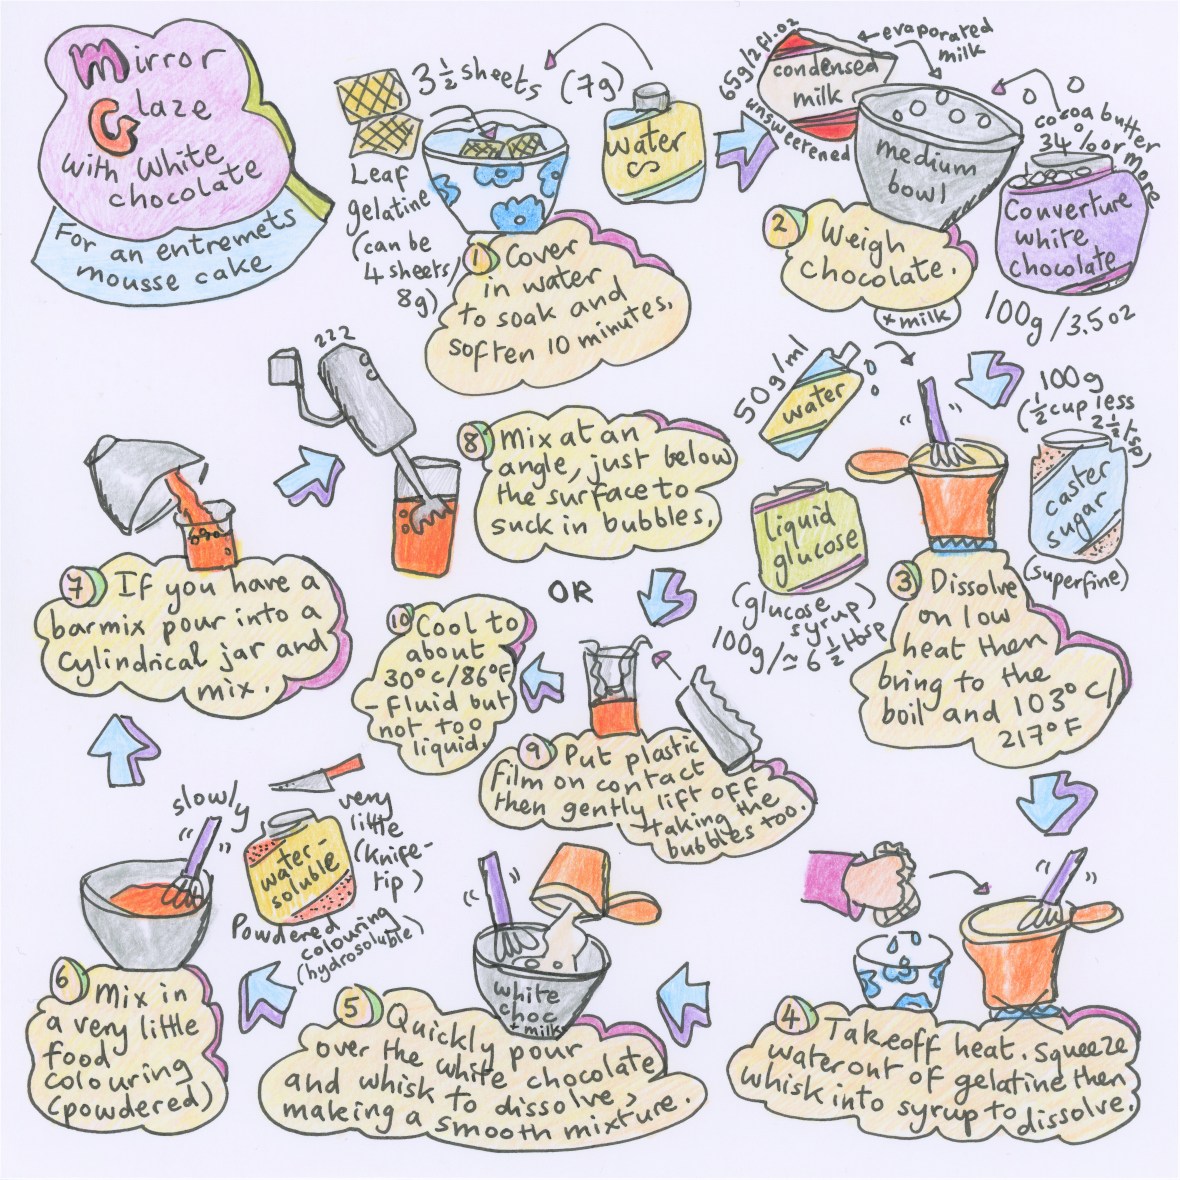 Mirror
Glaze
with White
chocolate
For an entremets
mousse cake
3 1/2 sheets
(7g)
Leaf
gelatine
(can be
4 sheets/
8g)
water
1 Cover
in water
to soak and
soften 10 minutes.
65g/2fl.oz
unsweetened
condensed
milk
evaporated
milk
medium
bowl
cocoa butter
34% or more
Couverture
white
chocolate
100g/3.5oz
2 Weigh
chocolate.
+ milk
50g/ml
water
100g
(1/2 cup less
2 1/2 tsp)
caster
sugar
(superfine)
liquid
glucose
(glucose
syrup)
100g/≃ 6 1/2 tbsp
3 Dissolve
on low
heat then
bring to the
boil and 103°C/
217°F
4 Take off heat. Squeeze
water out of gelatine then
whisk into syrup to dissolve.
white
choc
+ milk
5 Quickly pour
over the white chocolate
and whisk to dissolve,
making a smooth mixture.
slowly
very
little
(knife-
tip)
water-
soluble
Powdered
colouring
(hydrosoluble)
6 Mix in
a very little
food
colouring
(powdered)
7 If you have a
barmix pour into a
cylindrical jar and
mix.
zzz
8 Mix at an
angle, just below
the surface to
suck in bubbles.
OR
9 Put plastic
film on contact
then gently lift off
taking the
bubbles too.
10 Cool to
about
30°C/86°F
- fluid but
not too
liquid.